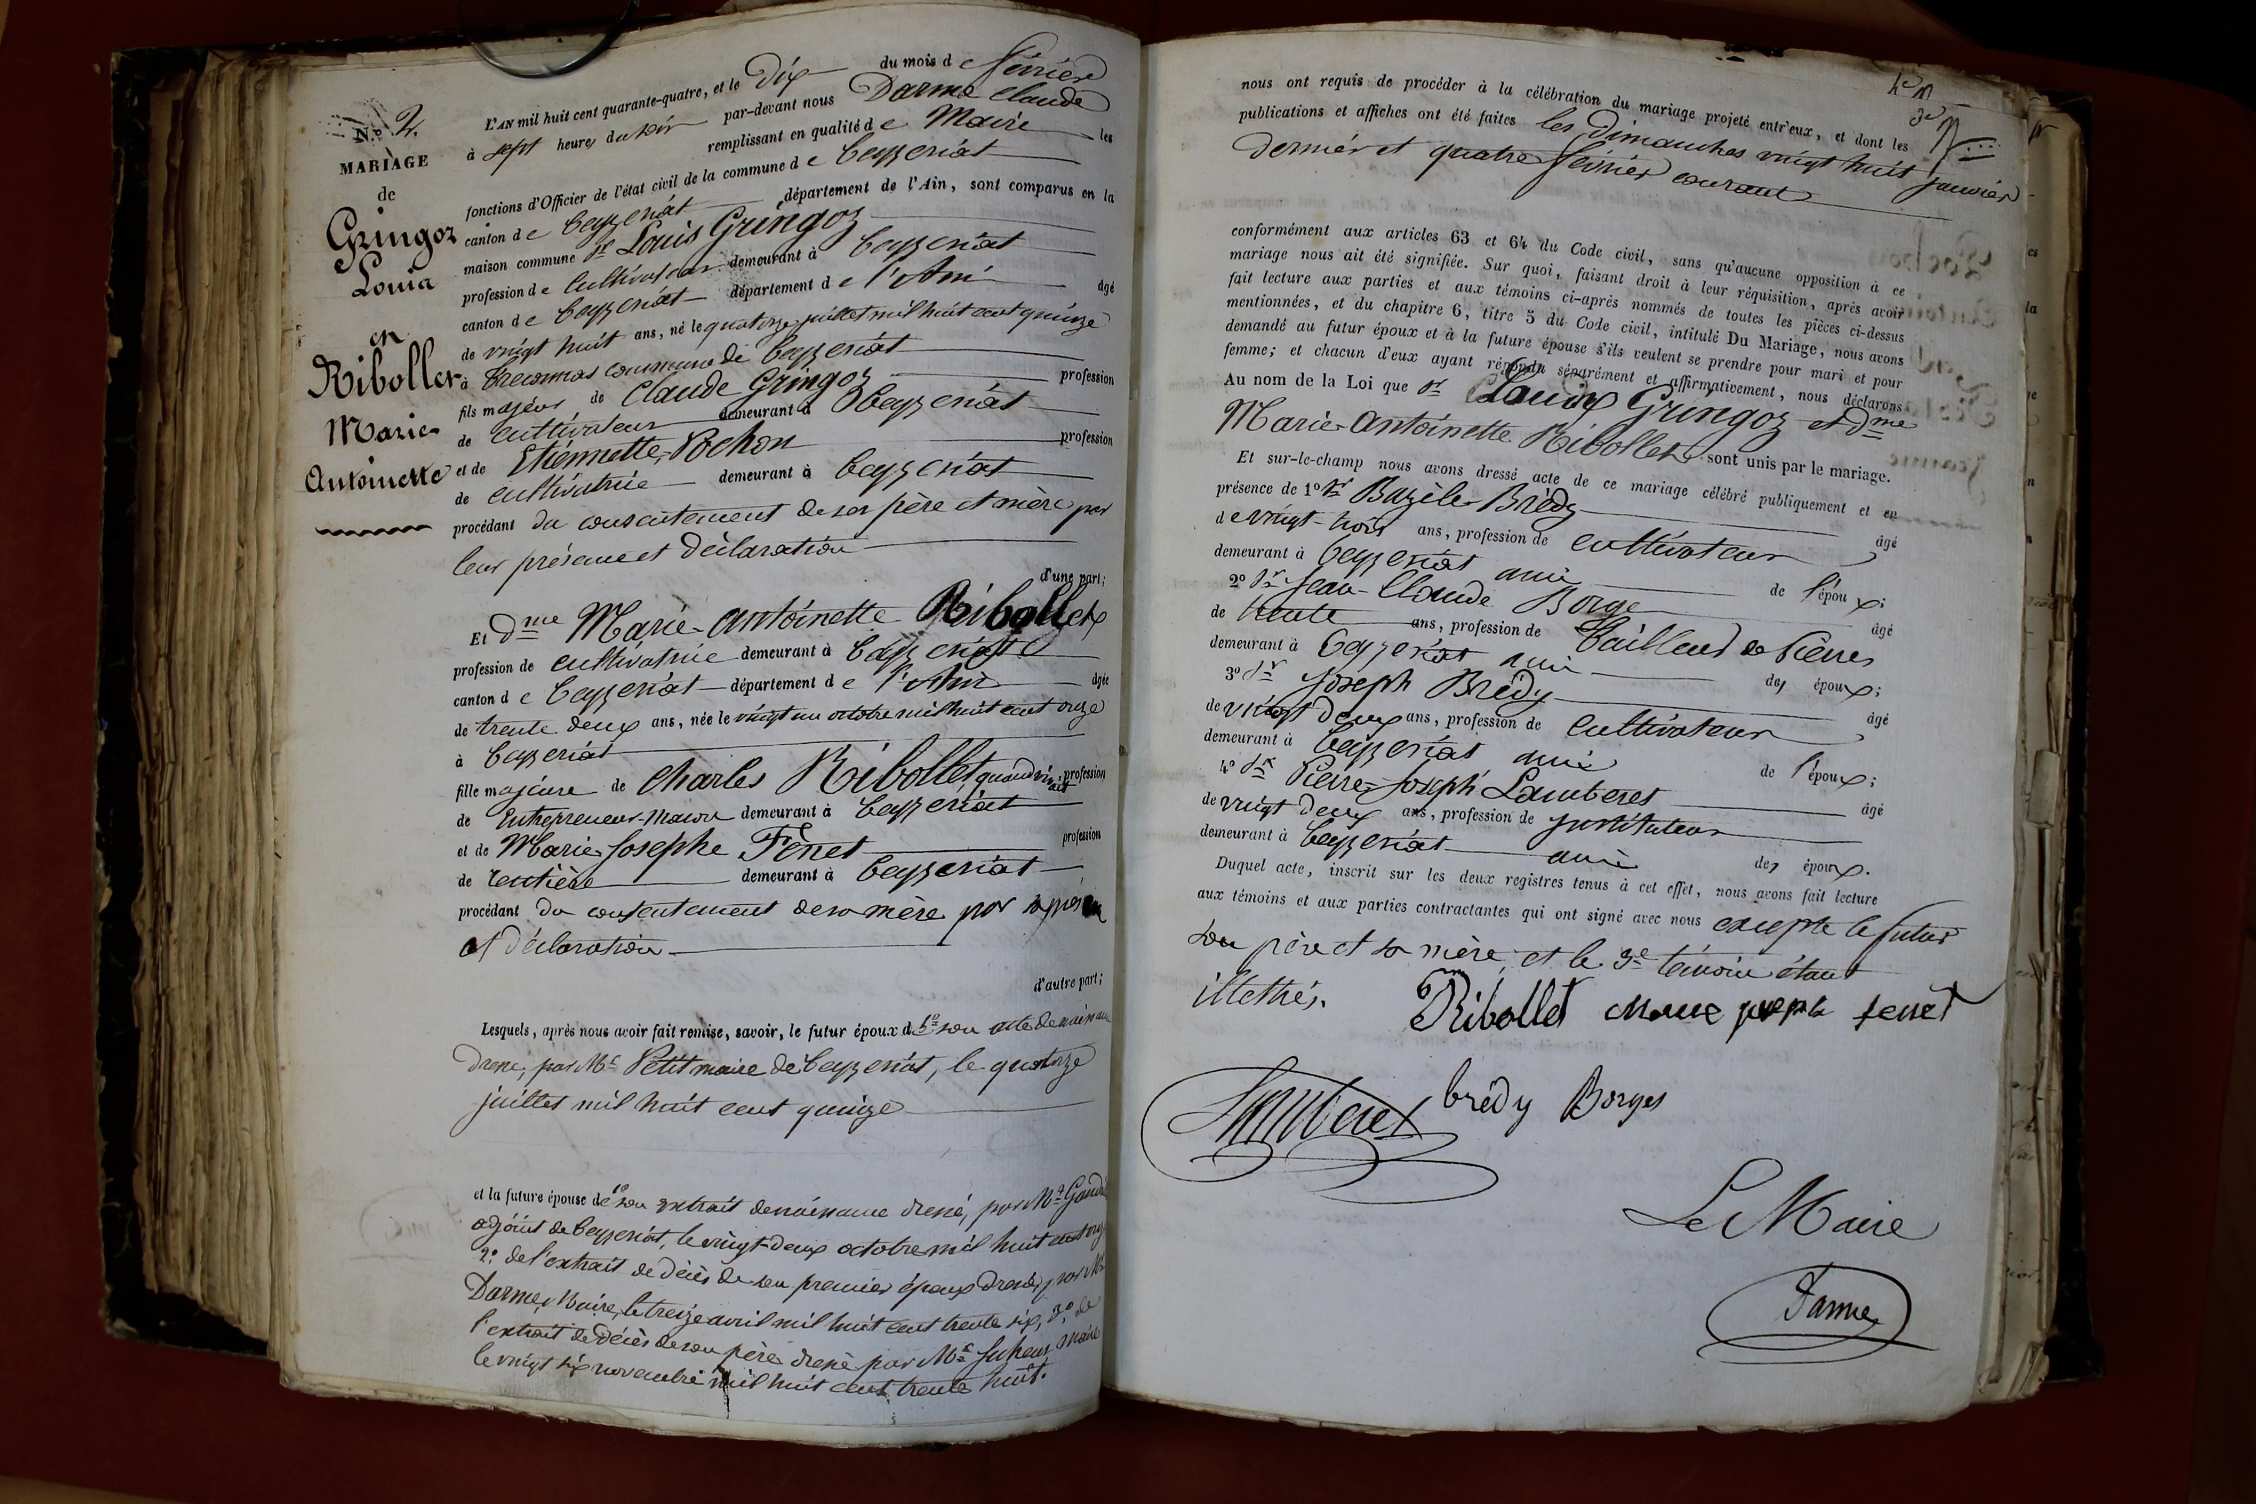 N.o 2.
MARIAGE
de
Gringoz
Louis
et
Ribollet
Marie
Antoinette
L'AN mil huit cent quarante-quatre, et le Dix du mois de février
à sept heures du soir par-devant nous Darme Claude
remplissant en qualité de Maire les
fonctions d'Officier de l'état civil de la commune de Ceyzeriat
canton de Ceyzeriat département de l'Ain, sont comparus en la
maison commune Sr Louis Gringoz
profession de Cultivateur demeurant à Ceyzeriat
canton de Ceyzeriat département de l'Ain âgé
de vingt huit ans, né le quatorze juillet mil huit cent quinze
à commune de Ceyzeriat
fils majeur de Claude Gringoz profession
de cultivateur demeurant à Ceyzeriat
et de Etiennette Pochon profession
de cultivatrice demeurant à Ceyzeriat
procédant du consentement de ses père et mère par
leur présence et déclaration
d'une part;
Et Dme Marie-Antoinette Ribollet
profession de cultivatrice demeurant à Ceyzeriat
canton de Ceyzeriat département de l'Ain âgée
de trente deux ans, née le vingt un octobre mil huit cent onze
à Ceyzeriat
fille majeure de Charles Ribollet, quand vivait profession
de Entrepreneur-Maçon demeurant à Ceyzeriat
et de Marie Josephe Fenet profession
de rentière demeurant à Ceyzeriat
procédant du consentement de sa mère par sa présence
et déclaration
d'autre part;
Lesquels, après nous avoir fait remise, savoir, le futur époux de 1o son acte de naissance
dressé, par Mr Petit maire de Ceyzeriat, le quatorze
juillet mil huit cent quinze
et la future épouse de 1o son extrait de naissance dressé, par Mr
adjoint de Ceyzeriat, le vingt-deux octobre mil huit cent onze
2o de l'extrait de décès de son premier époux dressé, par Mr
Darme, Maire, le treize avril mil huit cent trente six, 3o de
l'extrait de décès de son père dressé par Mr maire
le vingt six novembre mil huit cent trente huit.
nous ont requis de procéder à la célébration du mariage projeté entr'eux, et dont les
publications et affiches ont été faites les Dimanches vingt huit janvier
dernier et quatre février courant
conformément aux articles 63 et 64 du Code civil, sans qu'aucune opposition à ce
mariage nous ait été signifiée. Sur quoi, faisant droit à leur réquisition, après avoir
fait lecture aux parties et aux témoins ci-après nommés de toutes les pièces ci-dessus
mentionnées, et du chapitre 6, titre 5 du Code civil, intitulé Du Mariage, nous avons
demandé au futur époux et à la future épouse s'ils veulent se prendre pour mari et pour
femme; et chacun d'eux ayant répondu séparément et affirmativement, nous déclarons
Au nom de la Loi que Sr Louis Gringoz et Dme
Marie-Antoinette Ribollet sont unis par le mariage.
Et sur-le-champ nous avons dressé acte de ce mariage célébré publiquement et en
présence de 1o Sr Bazile Brédy âgé
de vingt-trois ans, profession de cultivateur
demeurant à Ceyzeriat ami de l'époux;
2o Sr Jean-Claude Borge âgé
de trente ans, profession de Tailleur de Pierres
demeurant à Ceyzeriat ami des époux;
3o Sr Joseph Brédy âgé
de vingt deux ans, profession de cultivateur
demeurant à Ceyzeriat ami de l'époux;
4o Sr Pierre-Joseph Lamberet âgé
de vingt deux ans, profession de instituteur
demeurant à Ceyzeriat ami des époux.
Duquel acte, inscrit sur les deux registres tenus à cet effet, nous avons fait lecture
aux témoins et aux parties contractantes qui ont signé avec nous excepté le futur
son père et sa mère, et le 3e témoin étant
illettrés.
Ribollet Marie josephe fenet
Lamberet brédy Borges
Le Maire
Darme